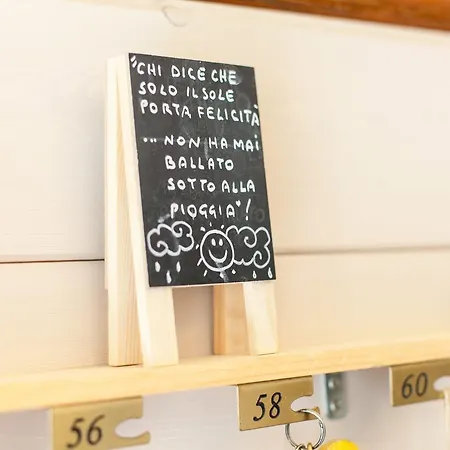 "CHI DICE CHE
SOLO IL SOLE
PORTA FELICITÀ
... NON HA MAI
BALLATO
SOTTO ALLA
PIOGGIA"!
56
58
60